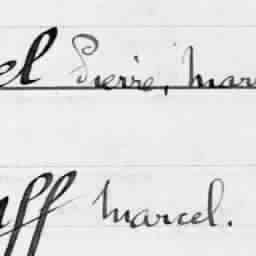 el Pierre, Mar
uff Marcel.